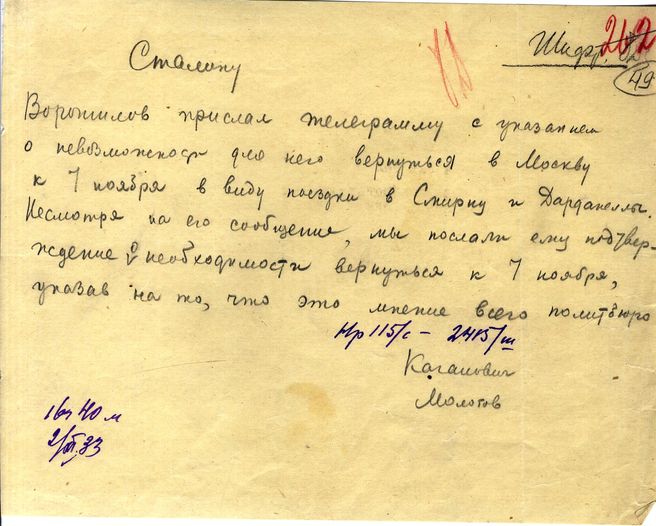 Шифр. 202
49
Сталину
Ворошилов прислал телеграмму с указанием
о невозможност для него вернуться в Москву
к 7 ноября в виду поездки в Смирну и Дарданеллы.
Несмотря на его сообщение, мы послали ему подтвер-
ждение о необходимости вернуться к 7 ноября,
указав на то, что это мнение всего политбюро
Нр 115/с – 2415/ш
Каганович
Молотов
16ч 40 м
2/XI.33